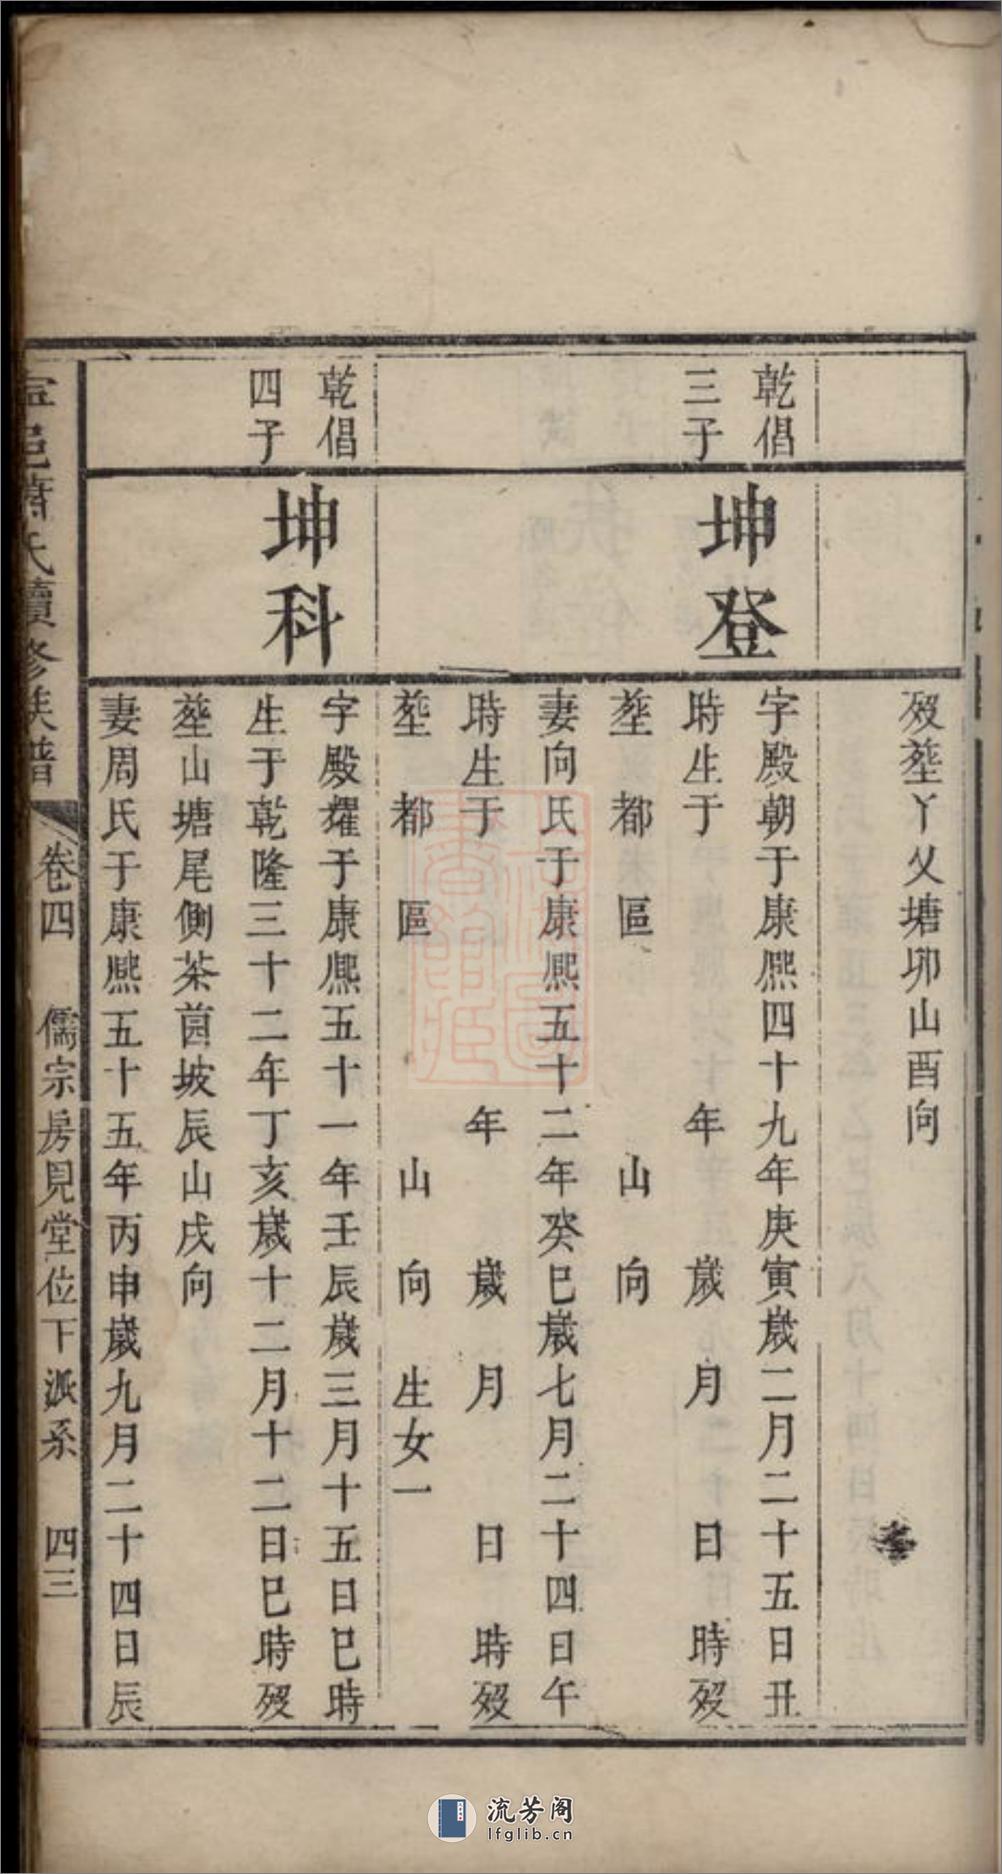 歿塟丫乂塘卯山酉向
乾倡
三子
坤登
字殿朝于康熈四十九年庚寅歳二月二十五日丑
時生于 年 歳 月 日 時歿
塟 都 區 山 向
妻向氏于康熈五十二年癸巳歳七月二十四日午
時生于 年 歳 月 日 時歿
塟 都 區 山 向 生女一
乾倡
四子
坤科
字殿燿于康熈五十一年壬辰歳三月十五日巳時
生于乾隆三十二年丁亥歳十二月十二日巳時歿
塟山塘尾側茶園坡辰山戌向
妻周氏于康熈五十五年丙申歳九月二十四日辰
邑蕭氏續修族譜 卷四 儒宗房見堂位下派系 四三
流芳阁
lfglib.cn